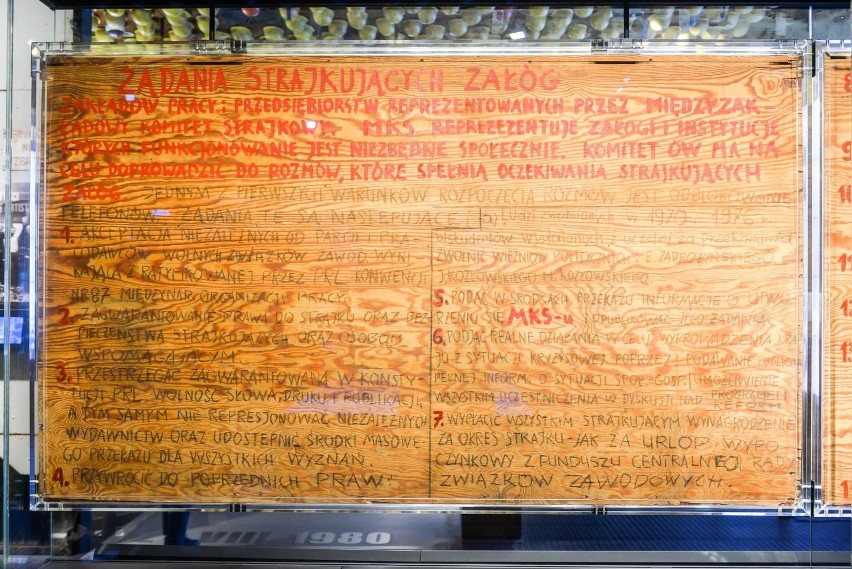 ŻĄDANIA STRAJKUJĄCYCH ZAŁÓG
ZAKŁADÓW PRACY I PRZEDSIĘBIORSTW REPREZENTOWANYCH PRZEZ MIĘDZYZAK-
ŁADOWY KOMITET STRAJKOWY. MKS REPREZEZENTUJE ZAŁOGI I INSTYTUCJE
KTÓRYCH FUNKCJONOWANIE JEST NIEZBĘDNE SPOŁECZNIE. KOMITET ÓW MA NA
CELU DOPROWADZIĆ DO ROZMÓW, KTÓRE SPEŁNIĄ OCZEKIWANIA STRAJKUJĄCYCH
ZAŁÓG. JEDNYM Z PIERWSZYCH WARUNKÓW ROZPOCZĘCIA ROZMÓW JEST ODBLOKOWANIE
TELEFONÓW. ŻĄDANIA TE SĄ NASTĘPUJĄCE:
1. AKCEPTACJA NIEZALEŻNYCH OD PARTII I PRA-
CODAWCÓW WOLNYCH ZWIĄZKÓW ZAWOD. WYNI-
KAJĄCA Z RATYFIKOWANEJ PRZEZ PRL KONWENCJI
NR 87 MIĘDZYNAR. ORGANIZACJI PRACY.
2. ZAGWARANTOWANIE PRAWA DO STRAJKU ORAZ BEZ-
PIECZEŃSTWA STRAJKUJĄCYCH ORAZ OSOBOM
WSPOMAGAJĄCYM.
3. PRZESTRZEGAĆ ZAGWARANTOWANĄ W KONSTY-
TUCJI PRL WOLNOŚĆ SŁOWA, DRUKU I PUBLIKACJI,
A TYM SAMYM NIE REPRESJONOWAĆ NIEZALEŻNYCH
WYDAWNICTW ORAZ UDOSTĘPNIĆ ŚRODKI MASOWE-
GO PRZEKAZU DLA WSZYSTKICH WYZNAŃ.
4. PRZYWRÓCIĆ DO POPRZEDNICH PRAW:
a) Ludzi zwolnionych w 1970 i 1976 r.
studentów wydalonych z uczelni za przekonania
ZWOLNIĆ WIĘŹNIÓW POLITYCZNYCH E. ZADROŻYŃSKIEGO
J. KOZŁOWSKIEGO M. KOZŁOWSKIEGO
5. PODAĆ W ŚRODKACH PRZEKAZU INFORMACJĘ O UTWO-
RZENIU SIĘ MKS-u I OPUBLIKOWAĆ JEGO ŻĄDANIA
6. PODJĄĆ REALNE DZIAŁANIA W CELU WYPROWADZENIA KRA-
JU Z SYTUACJI KRYZYSOWEJ POPRZEZ: PODAWANIE
PEŁNEJ INFORM. O SYTUACJI SPOŁ.-GOSP. UMOŻLIWIENIE
WSZYSTKIM UCZESTNICZENIA W DYSKUSJI NAD PROGRAMEM
REFORM
7. WYPŁACIĆ WSZYSTKIM STRAJKUJĄCYM WYNAGRODZENIE
ZA OKRES STRAJKU-JAK ZA URLOP WYPO-
CZYNKOWY Z FUNDUSZU CENTRALNEJ RADY
ZWIĄZKÓW ZAWODOWYCH.
VIII 1980